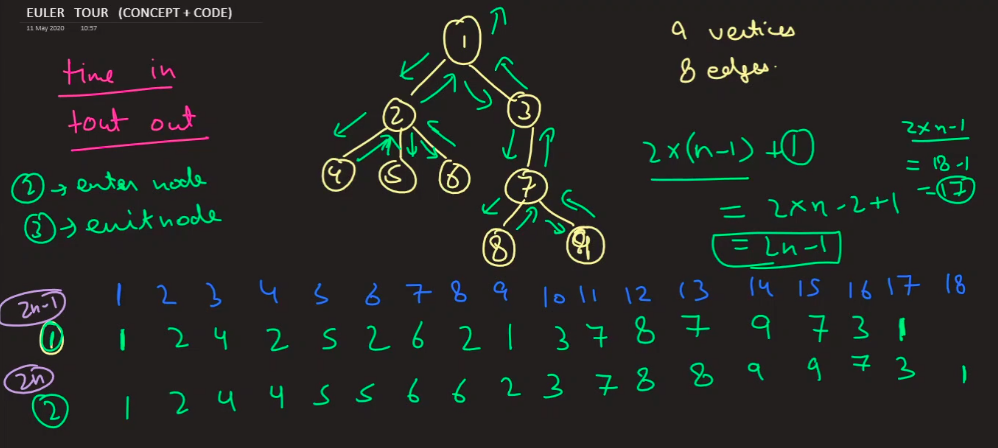 EULER TOUR (CONCEPT + CODE)
11 May 2020 10:57
time in
tout out
② → enter node
③ → exit node
1
2 3
4 5 6 7
8 9
9 vertices
8 edges.
2×(n-1) + ①
= 2×n-2+1
= 2n-1
2×n-1
= 18-1
= 17
1 2 3 4 5 6 7 8 9 10 11 12 13 14 15 16 17 18
2n-1
① 1 2 4 2 5 2 6 2 1 3 7 8 7 9 7 3 1
2n
② 1 2 4 4 5 5 6 6 2 3 7 8 8 9 9 7 3 1